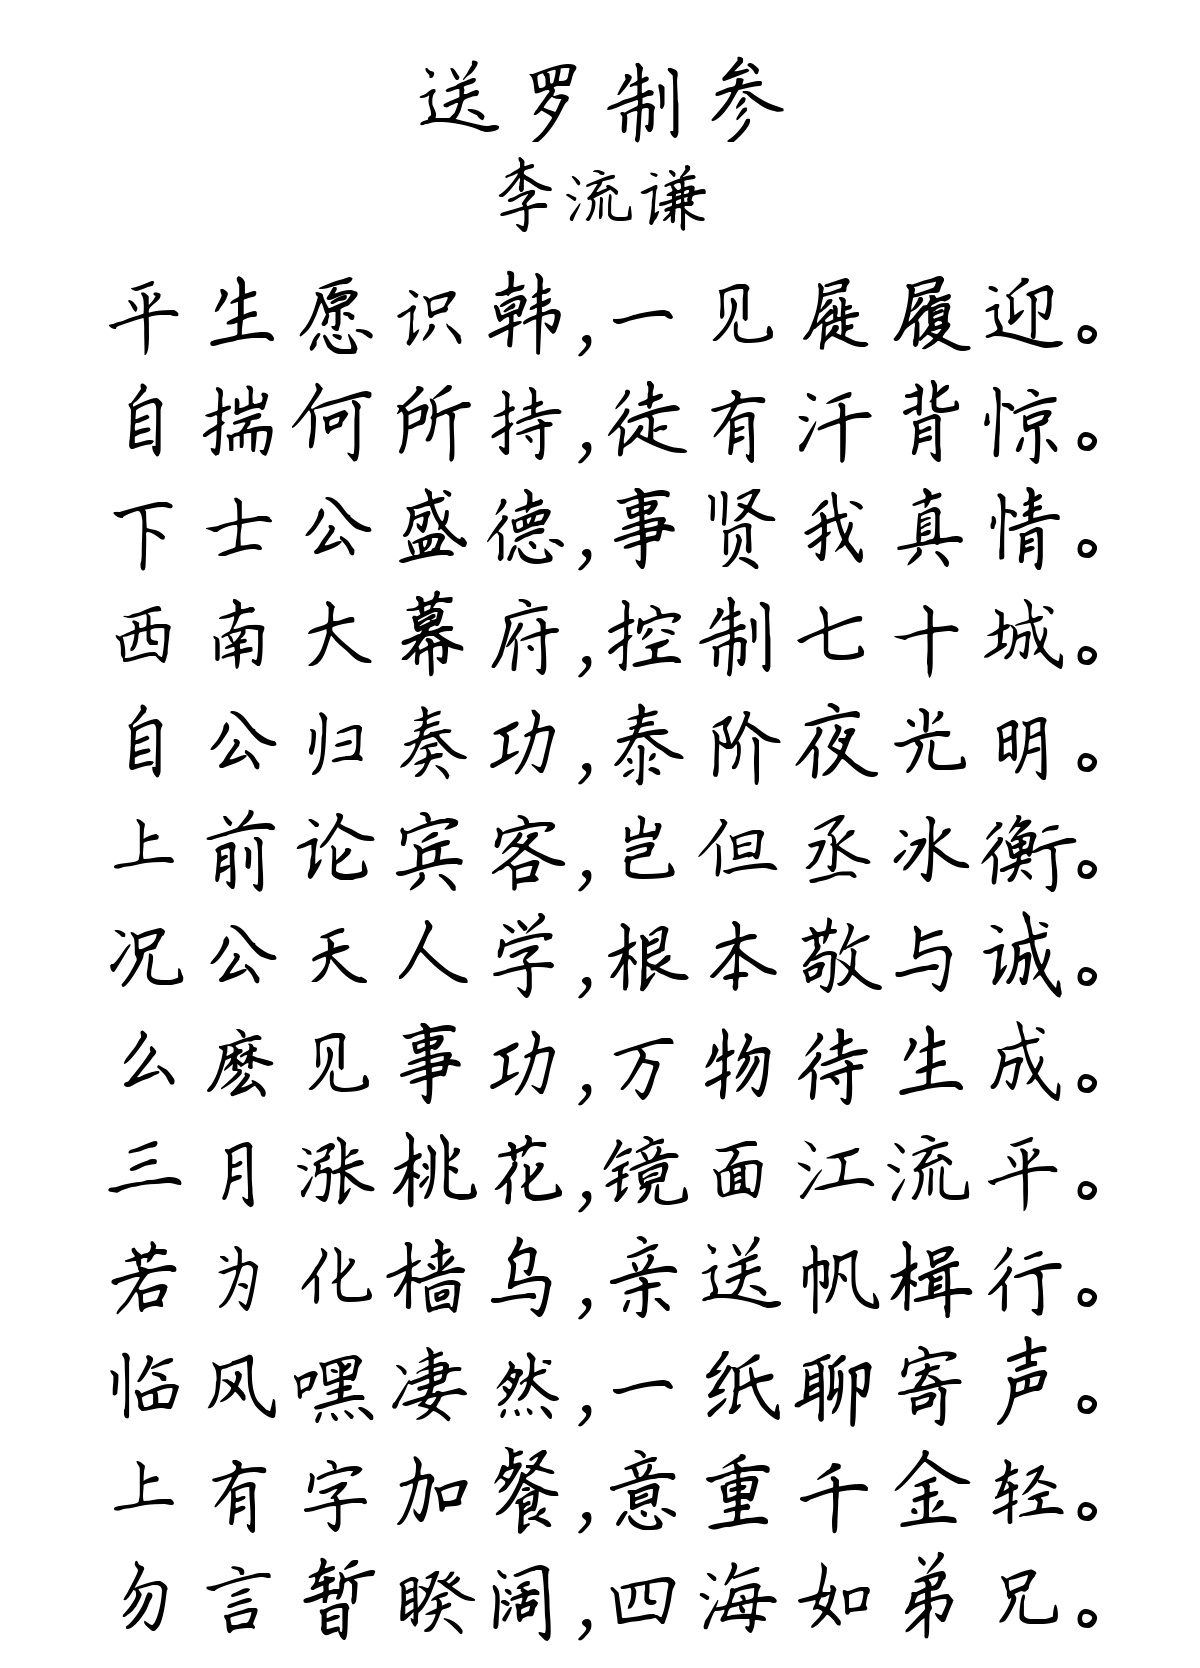 送罗制参
李流谦
平生愿识韩,一见屣履迎。
自揣何所持,徒有汗背惊。
下士公盛德,事贤我真情。
西南大幕府,控制七十城。
自公归奏功,泰阶夜光明。
上前论宾客,岂但丞冰衡。
况公天人学,根本敬与诚。
么麽见事功,万物待生成。
三月涨桃花,镜面江流平。
若为化樯乌,亲送帆楫行。
临风嘿凄然,一纸聊寄声。
上有字加餐,意重千金轻。
勿言暂暌阔,四海如弟兄。